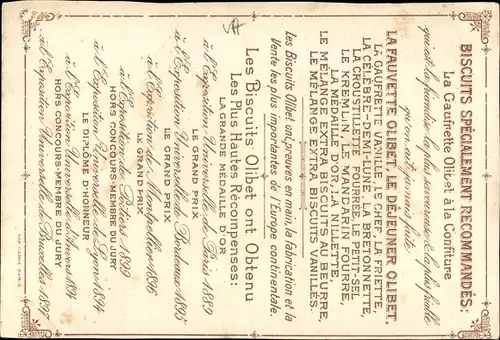 BISCUITS SPÉCIALEMENT RECOMMANDÉS:
La Gaufrette Olibet à la Confiture
qui est la friandise la plus savoureuse & la plus friable
qu'on ait jamais faite
LA FAUVETTE OLIBET, LE DÉJEUNER OLIBET.
LA GAUFRETTE VANILLE, LE CHEF, LA FRIETTE,
LA CÉLÈBRE DEMI-LUNE, LA BRETONNETTE,
LA CROUSTILLETTE FOURRÉE, LE PETIT-SEL
LE KREMLIN, LE MANDARIN FOURRÉ,
LA MÉDAILLE D'OR, LA
LE MÉLANGE EXTRA BISCUITS AU BEURRE,
LE MÉLANGE EXTRA BISCUITS VANILLÉS.
Les Biscuits Olibet ont, preuves en main, la fabrication et la
Vente les plus importantes de l'Europe continentale.
Les Biscuits Olibet ont Obtenu
Les Plus Hautes Récompenses:
LA GRANDE MÉDAILLE D'OR
à l'Exposition Universelle de Paris 1889
LE GRAND PRIX
à l'Exposition Universelle de Bordeaux 1895
LE GRAND PRIX
à l'Exposition de Montpellier 1896
LE GRAND PRIX
à l'Exposition de Poitiers 1899
HORS CONCOURS-MEMBRE DU JURY
à l'Exposition Universelle de Lyon 1894
LE DIPLÔME D'HONNEUR
à l'Exposition Universelle d'Anvers 1894
HORS CONCOURS-MEMBRE DU JURY
à l'Exposition Universelle de Bruxelles 1897